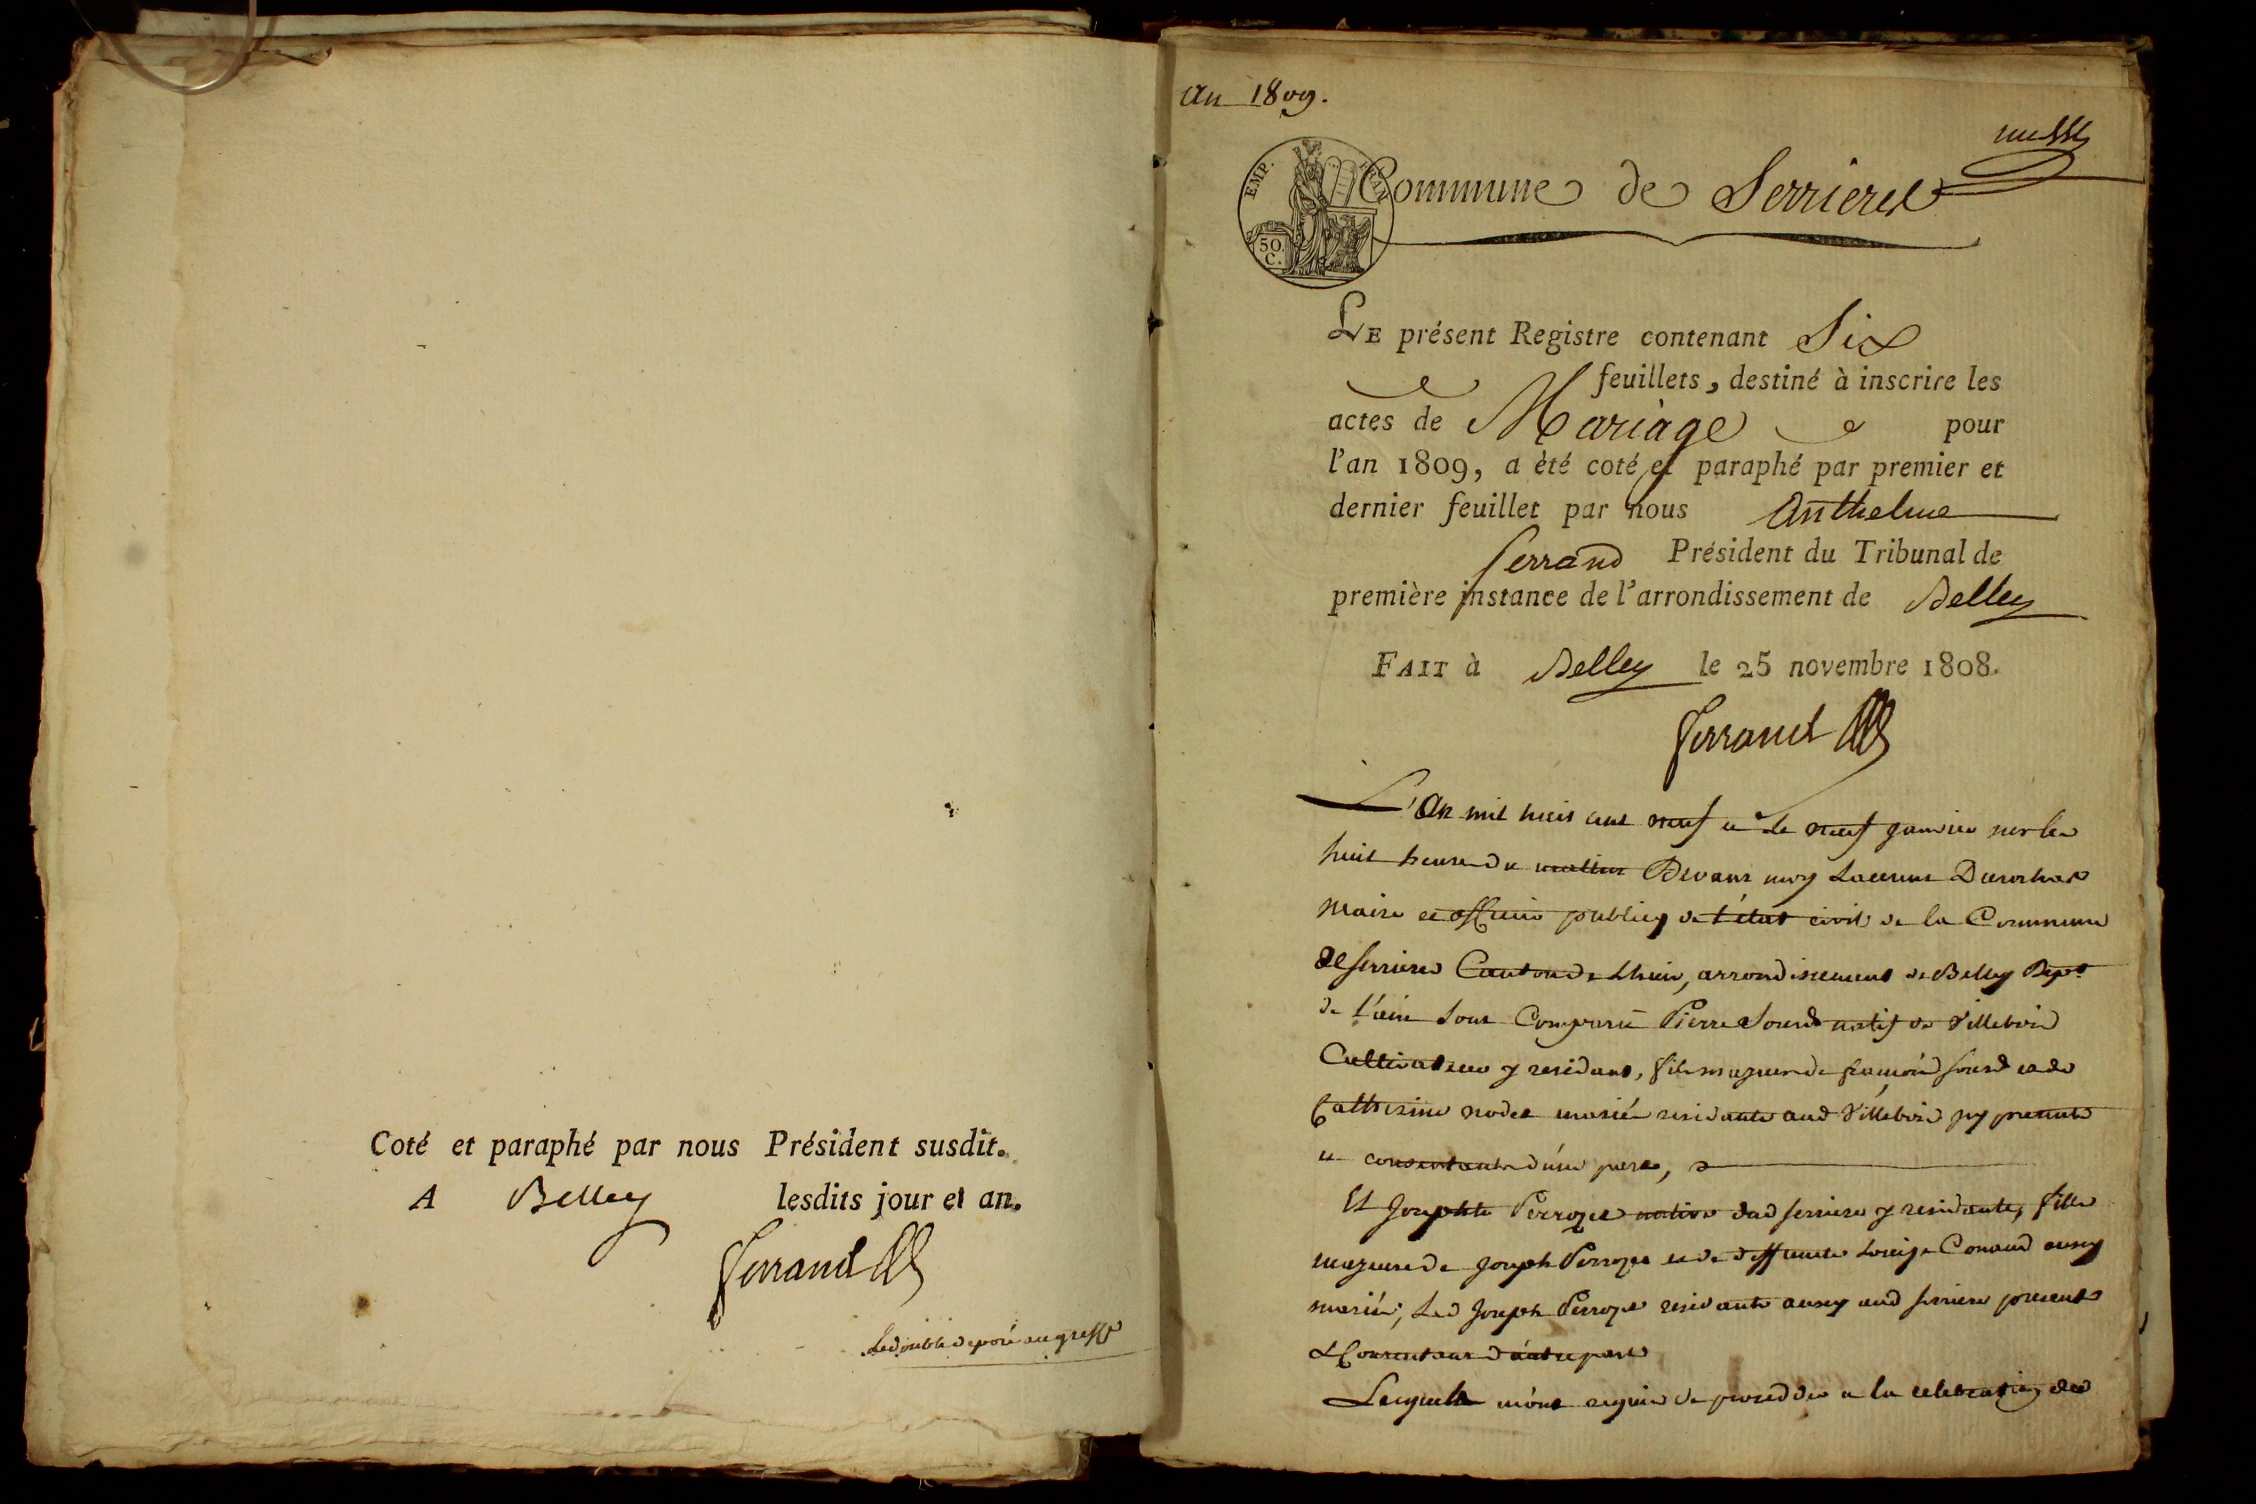 Coté et paraphé par nous Président susdit.
A Belley lesdits jour et an.
Ferrand
Le double deposé au greffe
An 1809.
EMP.
50.
C.
Commune de Serrieres
LE présent Registre contenant Six
feuillets, destiné à inscrire les
actes de Mariage pour
l'an 1809, a èté coté et paraphé par premier et
dernier feuillet par nous Anthelme
Ferrand Président du Tribunal de
première instance de l'arrondissement de Belley
FAIT à Belley le 25 novembre 1808.
Ferrand
L'An mil huit cent neuf et le neuf janvier sur les
huit heures du matin Devant moy Laurent
maire et officier publicq de l'état civil de la Commune
de Serrieres Canton de Lhuis, arrondissement de Belley Dept
de l'ain sont Comparu Pierre Sourd natif de Villebois
Cultivateur y residant, fils majeur de françois Sourd et de
Catherine nodet mariés residants aud Villebois icy presents
et consentants d'une part,
Et Josephte Perrozet native dud Serriere y residante, fille
majeure de Joseph Perrozet et de deffunte Louise Conand aussy
mariés, Led Joseph Perrozet residant aussy aud Serriere present
& Consentant d'autre part
Lesquels m'ont requis de procedder a la celebration du